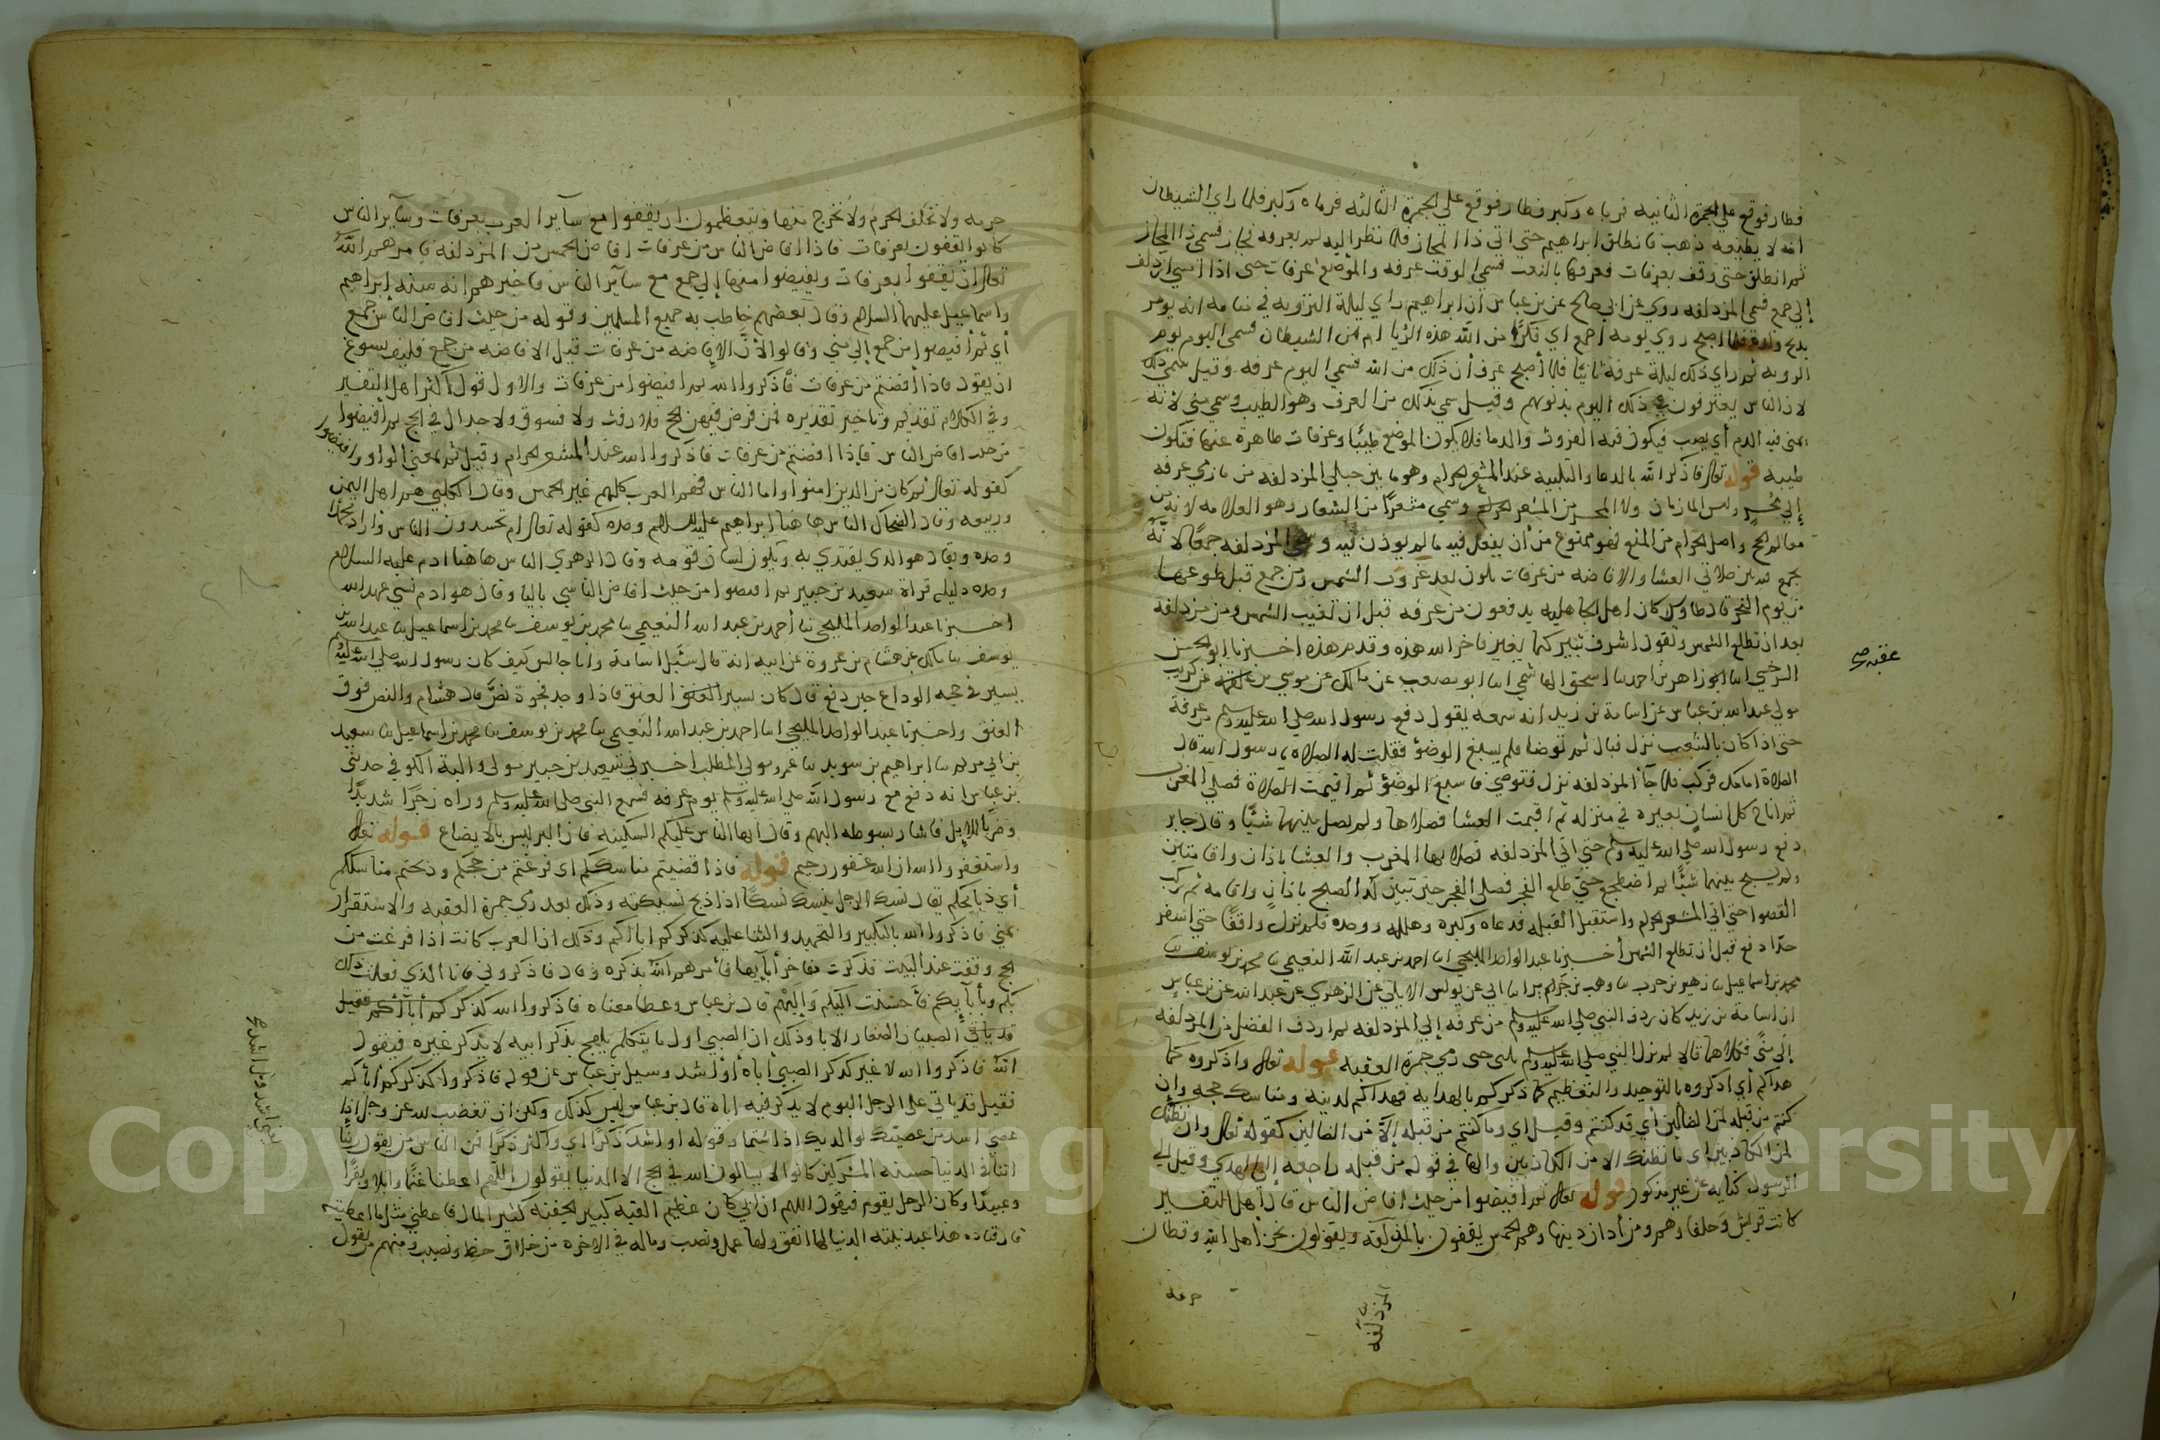 فطار فوقع على الجمرة الثانية فرماه وكبر فطار فوقع على الجمرة الثالثه فرماه وكبر فلما راي الشيطان
انه لا يطيعه ذهب فانطلق ابراهيم حتى اتى ذا المجاز فلما نظر اليه لم يعرفه فجاز فسمي ذا المجاز
ثم انطلق حتى وقف بعرفات فعرفها بالنعت فسمي الوقت عرفه والموضع عرفات حتى اذا امسى ازدلف
إلى جمع فسمي المزدلفه روي عن ابي صالح عن بن عباس أن ابراهيم راي ليلة التروية في منامه انه يومر
بذبح ولده فلما اصبح روي يومه اجمع اي فكر أمن الله هذه الرؤيا ام من الشيطان فسمي اليوم يوم
الترويه ثم راي ذلك ليلة عرفة ثانيا فلما أصبح عرف أن ذلك من الله فسمي اليوم عرفه وقيل سمي ذلك
لان الناس يعترفون في ذلك اليوم بذنوبهم وقيل سمي بذلك من العرف وهو الطيب وسمي مني لأنه
يمنى فيه الدم أي يصب فيكون فيه الفروث والدما فلا يكون الموضع طيبا وعرفات طاهرة عنها فتكون
طيبه قوله تعالى فاذكرا الله بالدعا والتلبية عند المشعر الحرام وهو ما بين جبلي المزدلفه من مازمي عرفه
إلى محسر وليس المازمان ولا المحسر من المشعر الحرام وسمي مشعرا من الشعار وهو العلامه لانه من
معالم الحج واصل الحرام من المنع فهو ممنوع من أن يفعل فيه مالم يوذن فيه وسمي المزدلفه جمعا لانه
يجمع فيه بين صلاتي العشا والافاضه من عرفات تكون بعد غروب الشمس ومن جمع قبل طلوعها
من يوم النحر قال طاوس كان اهل الجاهليه يدفعون من عرفه قبل ان تغيب الشمس ومن مزدلفه
بعد ان تطلع الشمس وتقول اشرق ثبير كيما يغير فاخر الله هذه وقدم هذه اخبرنا ابو الحسن
السرخسي انا ابو زاهر بن احمد نا اسحق الهاشمي انا ابو مصعب عن مالك عن موسي بن عقبه عن كريب
عقبه صح
مولى عبد الله بن عباس عن اسامة بن زيد انه سمعه يقول دفع رسول الله صلى الله عليه وسلم من عرفة
حتى اذا كان بالشعب نزل فبال ثم توضا فلم يسبغ الوضؤ فقلت له الصلاة يرسول الله قال
الصلاة امامك فركب فلما جاأ المزدلفه نزل فتوضى فاسبغ الوضؤ ثم اقيمت الصلاة فصلى المغرب
ثم اناخ كل انسان بعيره في منزله ثم اقيمت العشا فصلاها ولم يصل بينهما شيئا وقال جابر
دفع رسول الله صلى الله عليه وسلم حتى اتى المزدلفه فصلا بها المغرب والعشا باذان واقامتين
ولم يسبح بينهما شيئا ثم اضطجع حتى طلع الفجر فصلى الفجر حين تبين له الصبح باذان واقامه ثم ركب
القصوا حتى اتى المشعر الحرام واستقبل القبله فدعاه وكبره وهلله ووحده فلم يزل واقفا حتى اسفر
جدا دفع قبل ان تطلع الشمس أخبرنا عبد الواحد المليحي انا احمد بن عبد الله النعيمي نا محمد بن يوسف نا
محمد بن اسماعيل نا زهير بن حرب نا وهب بن جرير نا ابي عن يونس الايلي عن الزهري عن عبيد الله عن بن عباس
ان اسامة بن زيد كان ردف النبي صلى الله عليه وسلم من عرفه إلى المزدلفه ثم اردف الفضل من المزدلفه
إلى منى فكلاهما قالا لم يزل النبي صلى الله عليه وسلم يلبي حتى رمى جمرة العقبه قوله تعالى واذكروه كما
هداكم أي اذكروه بالتوحيد والتعظيم كما ذكركم بالهدايه فهداكم لدينه ومناسك حجه وإن
كنتم من قبله لمن الضالين أي قد كنتم وقيل اي وما كنتم من قبله إلا من الضالين كقوله تعالى وان نظنك
لمن الكاذبين اي ما نظنك الا من الكاذبين والها في قوله من قبله راجعه إلى الهدي وقيل الى
الرسول كنايه عن غير مذكور قوله تعالى ثم افيضوا من حيث افاض الناس قال أهل التفسير
كانت قريش وحلفاوهم ومن أدان دينها وهم الحمس يقفون بالمزدلفه ويقولون نحن أهل الله وقطان
المزدلفه
حرمه
حرمه ولا نخلف الحرم ولا نخرج منها ويتعظمون ان يقفوا مع سآير العرب بعرفات وسآير الناس
كانوا يقفون بعرفات فاذا افاض الناس من عرفات افاض الحمس من المزدلفه فامرهم الله
تعالى ان يقفوا بعرفات ويفيضوا منها إلى جمع مع سآير الناس فاخبرهم انه سنة إبراهيم
واسماعيل عليهما السلام وقال بعضهم خاطب به جميع المسلمين وقوله من حيث افاض الناس من جمع
أي ثم أفيضوا من جمع إلى منى وقالوا لأن الافاضه من عرفات قبل الافاضه من جمع فكيف يسوغ
ان يقول فاذا أفضتم من عرفات فاذكروا الله ثم افيضوا من عرفات والاول قول أكثر اهل التفسير
وفي الكلام تقديم وتاخير تقديره فمن فرض فيهن الحج فلا رفث ولا فسوق ولا جدال في الحج ثم أفيضوا
من حيث افاض الناس فإذا افضتم من عرفات فاذكروا الله عند المشعر الحرام وقيل ثم بمعنى الواو وافيضوا
كقوله تعالى ثم كان من الذين امنوا واما الناس فهم العرب كلهم غير الحمس وقال الكلبي هم اهل اليمن
وربيعه وقال الضحاك الناس ها هنا إبراهيم عليه السلام وحده كقوله تعالى ام يحسدون الناس وأراد محمدا
وحده ويقال هو الذي يقتدي به ويكون لسان قومه وقال الزهري الناس ها هنا ادم عليه السلام
وحده دليله قراة سعيد بن جبير ثم افيضوا من حيث افاض الناسي باليا وقال هو ادم نسي عهد الله
اخبرنا عبد الواحد المليحي نا أحمد بن عبد الله النعيمي نا محمد بن يوسف نا محمد بن اسماعيل نا عبد الله بن
يوسف نا مالك عن هشام بن عروة عن ابيه انه قال سئل اسامة وانا جالس كيف كان رسول الله صلى الله عليه وسلم
يسير في حجه الوداع حين دفع قال كان يسير العنق فاذا وجد فجوة نص قال هشام والنص فوق
العنق واخبرنا عبد الواحد المليحي انا احمد بن عبد الله النعيمي نا محمد بن يوسف نا محمد بن اسماعيل نا سعيد
بن ابي مريم نا إبراهيم بن سويد نا عمرو مولى المطلب اخبرني سعيد بن جبير مولى والبة الكوفي حدثني
بن عباس انه دفع مع رسول الله صلى الله عليه وسلم يوم عرفه فسمع النبي صلى الله عليه وسلم وراه زجرا شديدا
وضربا للابل فاشار بسوطه اليهم وقال ايها الناس عليكم السكينه فان البر ليس بالايضاع قوله تعالى
واستغفروا الله ان الله غفور رحيم قوله فاذا قضيتم مناسككم اي فرغتم من حجكم وذبحتم مناسككم
أي ذبايحكم يقال نسك الرجل ينسك نسكا اذا ذبح نسيكته وذلك بعد رمي جمرة العقبه والاستقرار
بمنى فاذكروا الله بالتكبير والتحميد والثنا عليه كذكركم اباآكم وذلك ان العرب كانت اذا فرغت من
الحج وقفت عند البيت فذكرت مفاخر أبآيها فأمرهم الله بذكره وقال فاذكروني فانا الذي فعلت ذلك
بكم وبأبآيكم فأحسنت اليكم وإليهم قال بن عباس وعطا معناه فاذكروا الله كذكركم أبآئكم فقيل
قد ياتي الصبيان الصغار الابا وذلك ان الصبي اول ما يتكلم يلهج بذكر ابيه لا يذكر غيره فيقول
الله فاذكروا الله لا غير كذكر الصبي أباه أو أشد وسيل بن عباس عن قوله فاذكروا الله كذكركم أباكم
فقيل قد ياتي على الرجل اليوم لا يذكر فيه اباه قال بن عباس ليس كذلك ولكن ان تغضب لله عز وجل اذا
عصي اشد من غضبك لوالديك اذا شتما وقوله او اشد ذكرا اي واكثر ذكرا فمن الناس من يقول ربنا
اتنا في الدنيا حسنة المشركين كانوا لا يسالون الله في الحج الا الدنيا يقولون اللهم اعطنا غنما وابلا وبقرا
وعبيدا وكان الرجل يقوم فيقول اللهم ان ابي كان عظيم القبه كبير الجفنه كثير المال فاعطني مثل ما اعطيته
قال قتاده هذا عبد نيته الدنيا لها انفق ولها عمل ونصب وماله في الاخره من خلاق حظ ونصيب ومنهم من يقول